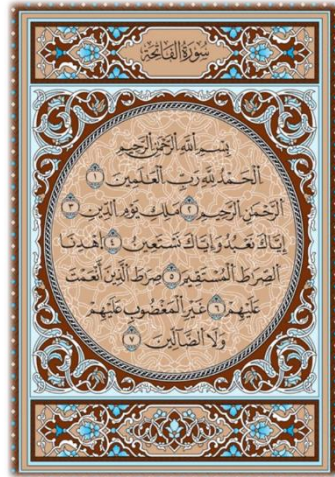 سُورَةُ الفَاتِحَةِ
بِسْمِ اللَّهِ الرَّحْمَٰنِ الرَّحِيمِ
الْحَمْدُ لِلَّهِ رَبِّ الْعَٰلَمِينَ ١
الرَّحْمَٰنِ الرَّحِيمِ ٢ مَٰلِكِ يَوْمِ الدِّينِ ٣
إِيَّاكَ نَعْبُدُ وَإِيَّاكَ نَسْتَعِينُ ٤ اهْدِنَا
الصِّرَٰطَ الْمُسْتَقِيمَ ٥ صِرَٰطَ الَّذِينَ أَنْعَمْتَ
عَلَيْهِمْ ٦ غَيْرِ الْمَغْضُوبِ عَلَيْهِمْ
وَلَا الضَّالِّينَ ٧